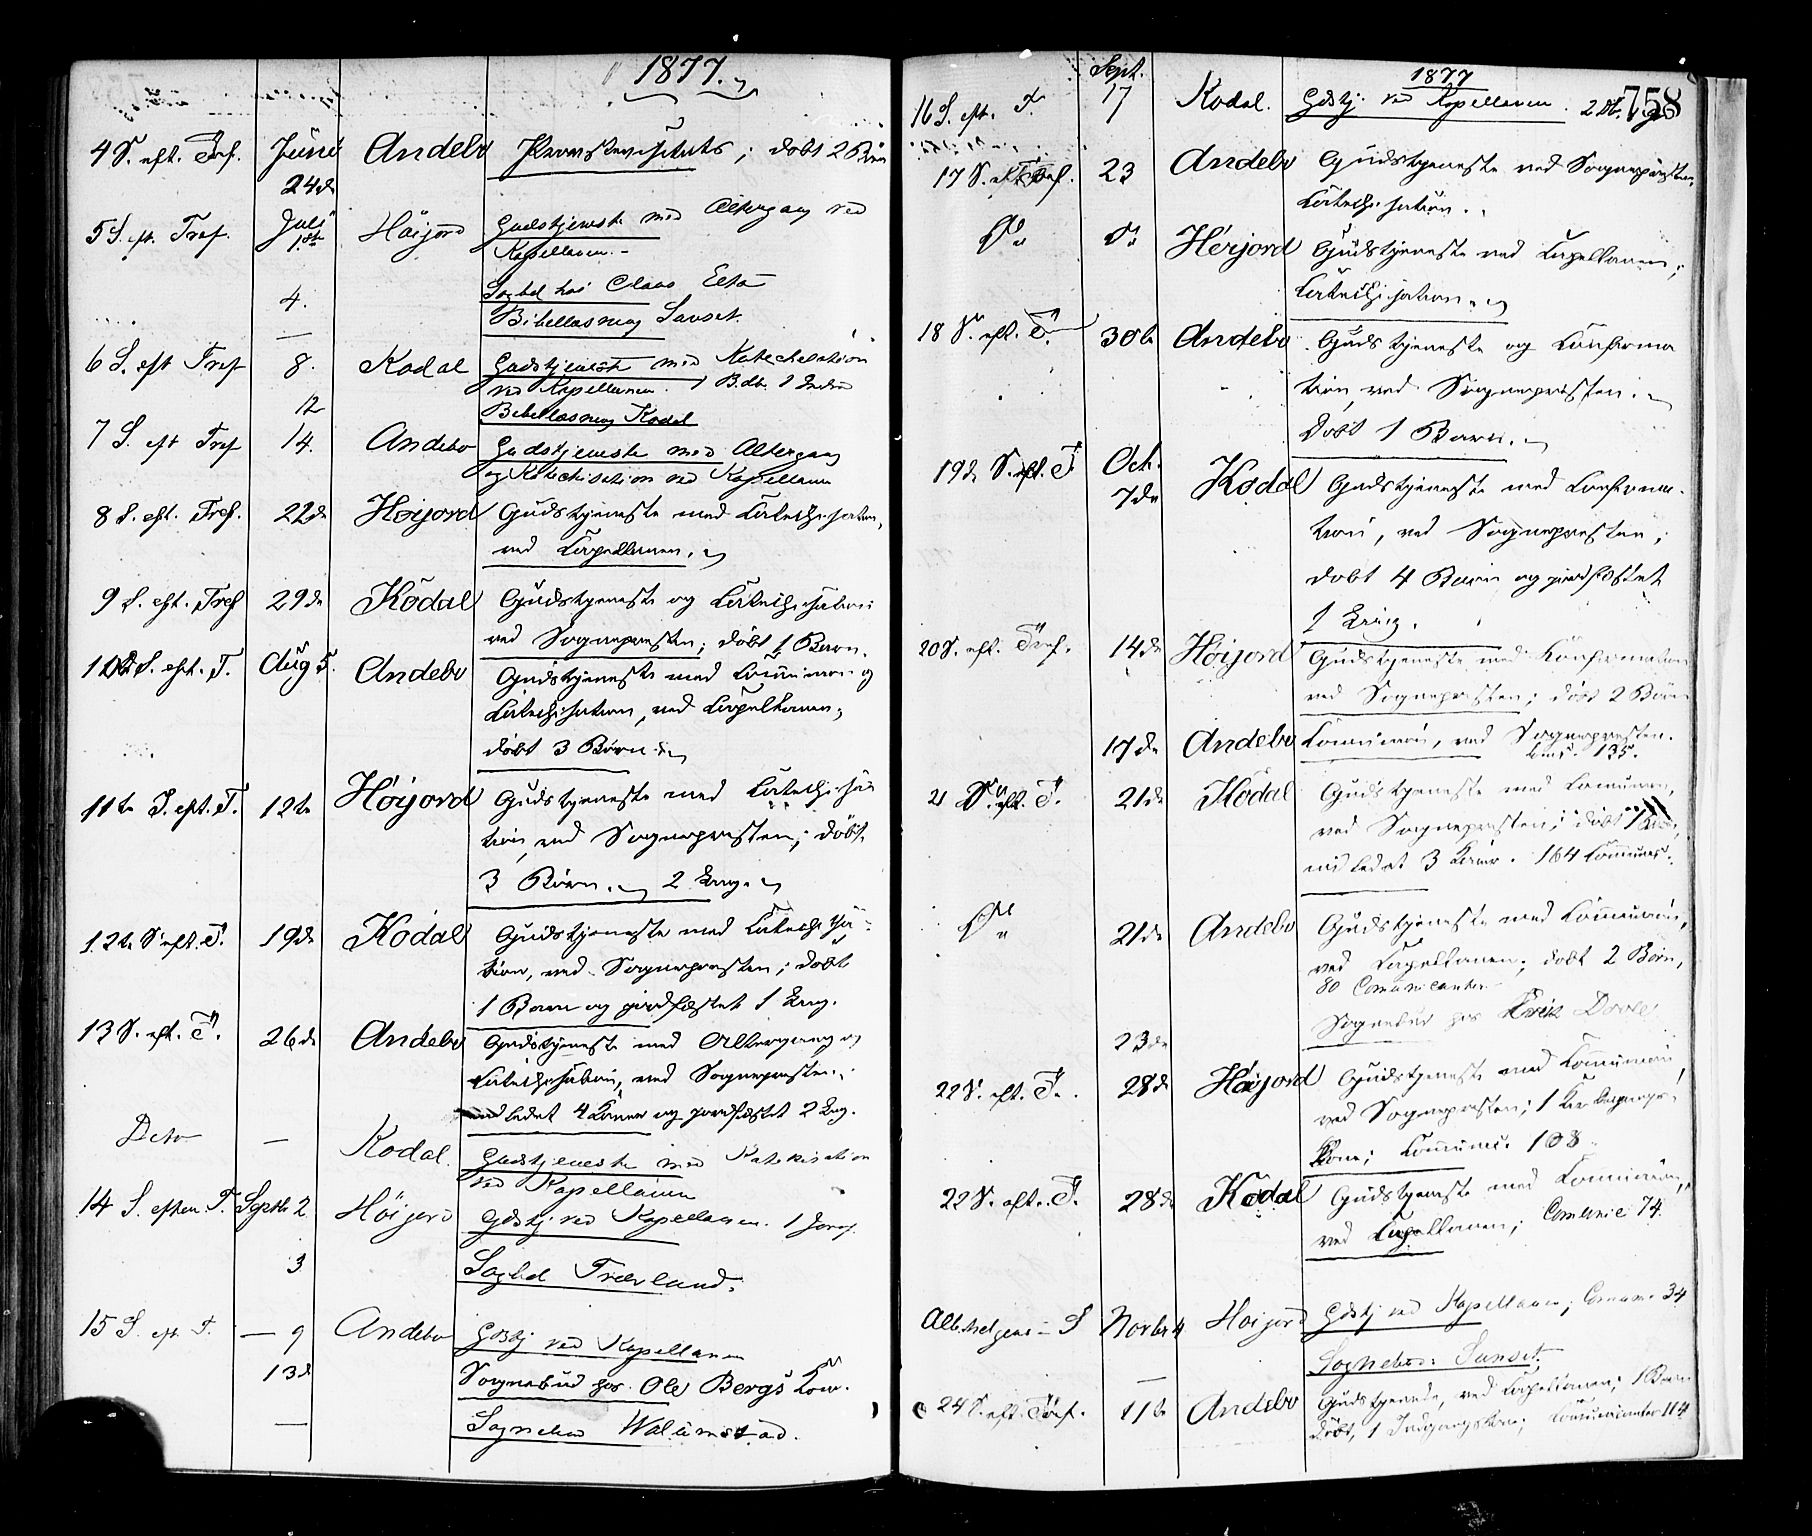 1877.
4 S. eft. Tref. Juni 24de Andebo Provstevisitats; døbt 2 Børn
5 S. eft. Tref. Juli 1ste Høijord Gudstjeneste med Altergang ved
Kapellanen.
4. Sogbd hos Claus
Bibellæsning Sauset.
6 S. eft Tref 8. Kodal Gudstjeneste med Katechisation
ved Kapellanen. 1 B. db.
12 Bibellæsning Kodal
7 S. eft Tref 14. Andebo Gudstjeneste med Altergang
og Katechisation ved Kapellanen
8 S. eft. Tref. 22de Høijord Gudstjeneste med Catechisation,
ved Capellanen.
9 S. eft. Tref 29de Kodal Gudstjeneste og Catechisation
ved Sognepresten; døbt 1 Barn.
10de S. eft. T. Aug 5. Andebo Gudstjeneste med Communion og
Catechisation, ved Capellanen;
døbt 3 Børn.
11te S. eft. T. 12te Høijord Gudstjeneste med Catechisa
tion, ved Sognepresten; døbt
3 Børn. 2 Lig.
12te S eft. T. 19de Kodal Gudstjeneste med Catechisa-
tion, ved Sognepresten; døbt
1 Barn og jordfæstet 1 Lig.
13 S. eft. T. 26de Andebo Gudstjeneste med Altergang og
Catechisation, ved Sognepresten;
indledet 4 Koner og jordfæstet 2 Lig.
Dito — Kodal. Gudstjeneste med Katekisation
ved Kapellanen
14 S. efter T. Septbr 2 Høijord Gdstj ved Kapellanen. 1 Jordf.
3 Sogbd Træland.
15 S. eft. T. — 9 Andebo Gdstj ved Kapellanen
13de Sognebud hos Ole Bergs Kone.
— Sognebud Walumstad.
1877
758
16 S. eft. T. Sept. 17 Kodal. Gdstj. ved Kapellanen. 2 db.
17 S. eft. Tref. 23 Andebo Gudstjeneste ved Sognepresten,
Catechisation.
Do Do Høijord Gudstjeneste ved Capellanen;
Catechisation.
18 S. eft. T. 30te Andebo Gudstjeneste og Confirma
tion, ved Sognepresten.
Døbt 1 Barn.
19de S. eft. T. Oct. 7de Kodal Gudstjeneste med Confirma-
tion, ved Sognepresten;
døbt 4 Børn og jordfæstet
1 Lig.
20 S. eft. Tref. 14de Høijord Gudstjeneste med Confirmation
ved Sognepresten; døbt 2 Børn
17de Andebo Communion, ved Sognepresten.
Cms. 135.
21 S. eft. T. 21de Kodal Gudstjeneste med Comunion,
ved Sognepresten; døbt 1
indledet 3 Koner. 164 Communic.
Do 21de Andebo Gudstjeneste med Communion,
ved Capellanen; døbt 2 Børn,
80 Comunicanter
23de Sognebud hos
22 S. eft. T. 28de Høijord Gudstjeneste med Communion
ved Sognepresten; 1 Kirkegangs-
Kone; Communic. 108
22 S. eft. T. 28de Kodal Gudstjeneste med Communion,
ved Capellanen; Comunic 74.
Allehelgens S Novbr 4 Høijord Gdstj ved Kapellanen; Comun. 34
— Sognebud: Sunset.
24 S. eft. Tref. 11te Andebo Gudstjeneste, ved Capellanen; 1 Barn
Døbt, 1 Indgangskone; Communicanter 114